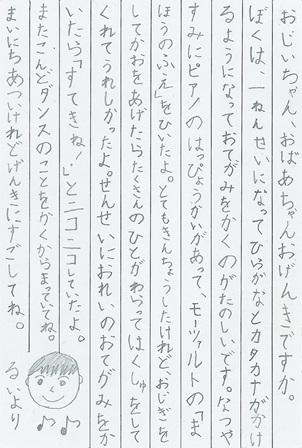 おじいちゃん、おばあちゃんおげんきですか。
ぼくは、一ねんせいになってひらがなとカタカナがかけ
るようになっておてがみをかくのがたのしいです。なつや
すみにピアノのはっぴょうかいがあって、モーツァルトの「ま
ほうのふえ」をひいたよ。とてもきんちょうしたけれど、おじぎを
してかおをあげたらたくさんのひとがわらってはくしゅをして
くれてうれしかったよ。せんせいにおれいのおてがみをか
いたら「すてきね!」とニコニコしていたよ。
またこんどダンスのことをかくからまっていてね。
まいにちあついけれどげんきにすごしてね。
るいより